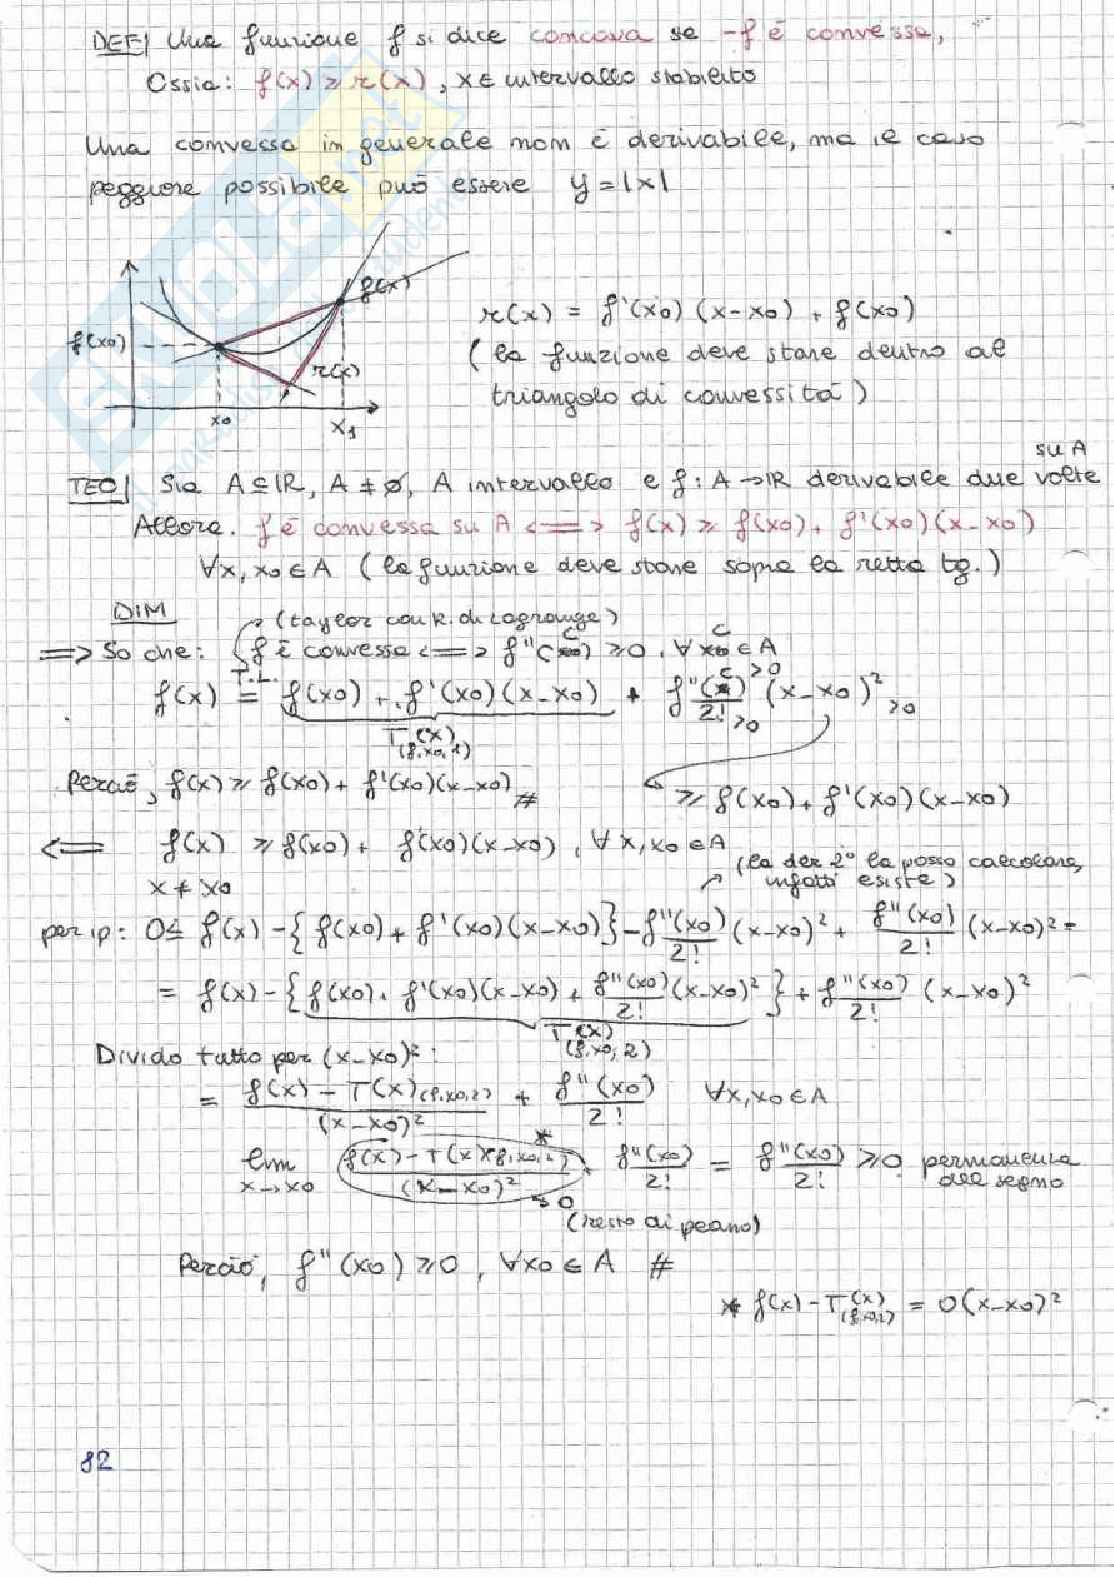 DEF| Una funzione f si dice concava se -f è convessa,
Ossia: f(x) ≥ r(x), x ∈ intervallo stabilito
Una convessa in generale non è derivabile, ma il caso
peggiore possibile può essere y = |x|
f(x)
f(x0)
r(x)
x0
x1
r(x) = f'(x0)(x-x0) + f(x0)
(la funzione deve stare dentro al
triangolo di convessità)
su A
TEO| Sia A ⊆ ℝ, A ≠ ∅, A intervallo e f: A → ℝ derivabile due volte
Allora. f è convessa su A <=> f(x) ≥ f(x0) + f'(x0)(x-x0)
∀x, x0 ∈ A (la funzione deve stare sopra la retta tg.)
DIM
(taylor con R. di Lagrange)
=> So che: f è convessa <=> f''(c) ≥ 0, ∀ c ∈ A
f(x) =^{T.L.} f(x0) + f'(x0)(x-x0) + f''(c)/2! (x-x0)² ≥0
T(x) (f,x0,1)
Perciò, f(x) ≥ f(x0) + f'(x0)(x-x0) #
≥ f(x0) + f'(x0)(x-x0)
<= f(x) ≥ f(x0) + f'(x0)(x-x0), ∀ x, x0 ∈ A
x ≠ x0
(la der 2° la posso calcolare,
infatti esiste)
per ip: 0 ≤ f(x) - {f(x0) + f'(x0)(x-x0)} - f''(x0)/2! (x-x0)² + f''(x0)/2! (x-x0)² =
= f(x) - {f(x0) + f'(x0)(x-x0) + f''(x0)/2! (x-x0)²} + f''(x0)/2! (x-x0)²
T(x) (f,x0,2)
Divido tutto per (x-x0)²:
= f(x) - T(x)(f,x0,2) / (x-x0)² + f''(x0)/2! ∀x, x0 ∈ A
lim x→x0 f(x) - T(x)(f,x0,2)* / (x-x0)² + f''(x0)/2! = f''(x0)/2! ≥ 0 permanenza
del segno
→ 0
(resto di peano)
Perciò, f''(x0) ≥ 0, ∀x0 ∈ A #
* f(x) - T(x) (f,x0,2) = o(x-x0)²
82